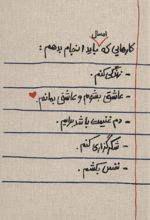 کارهایی که امسال باید انجام بدهم:
- زندگی کنم.
- عاشق بشوم و عاشق بمانم.
- دم غنیمت باشد برایم.
- شکرگزاری کنم.
- نفس بکشم.